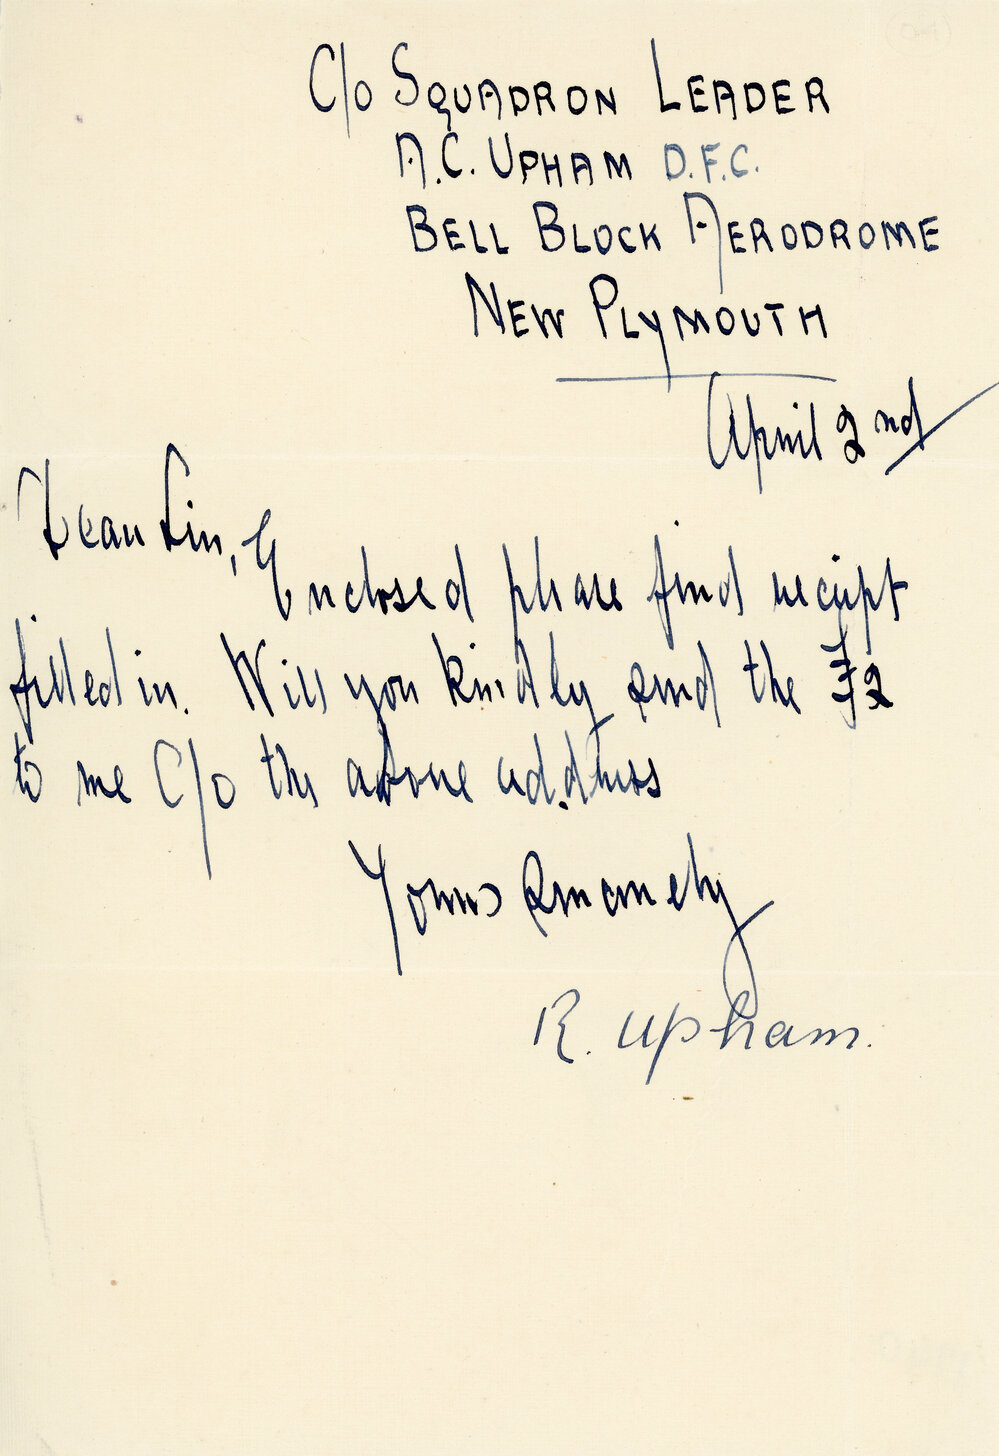 C/o SQUADRON LEADER
A.C. UPHAM D.F.C.
BELL BLOCK AERODROME
NEW PLYMOUTH
April 2nd
Dear Sir,
Enclosed please find reciept
filled in. Will you kindly send the £2
to me C/o the above address
Yours Sincerely
R. Upham.